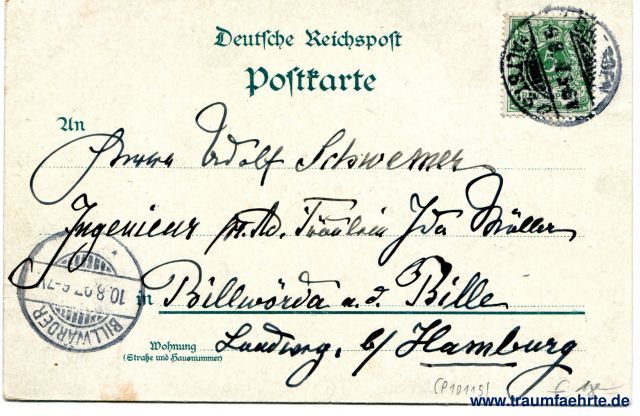 Deutsche Reichspost
Postkarte
An
Herrn Adolf Schwemer
Ingenieur p. Ad. Fräulein Ida Müller
in Billwörda a. d. Bille
Wohnung
(Straße und Hausnummer)
Landweg. b/ Hamburg
10.8.97. 6-7N
BILLWÄRDER
(P10115)
www.traumfaehrte.de